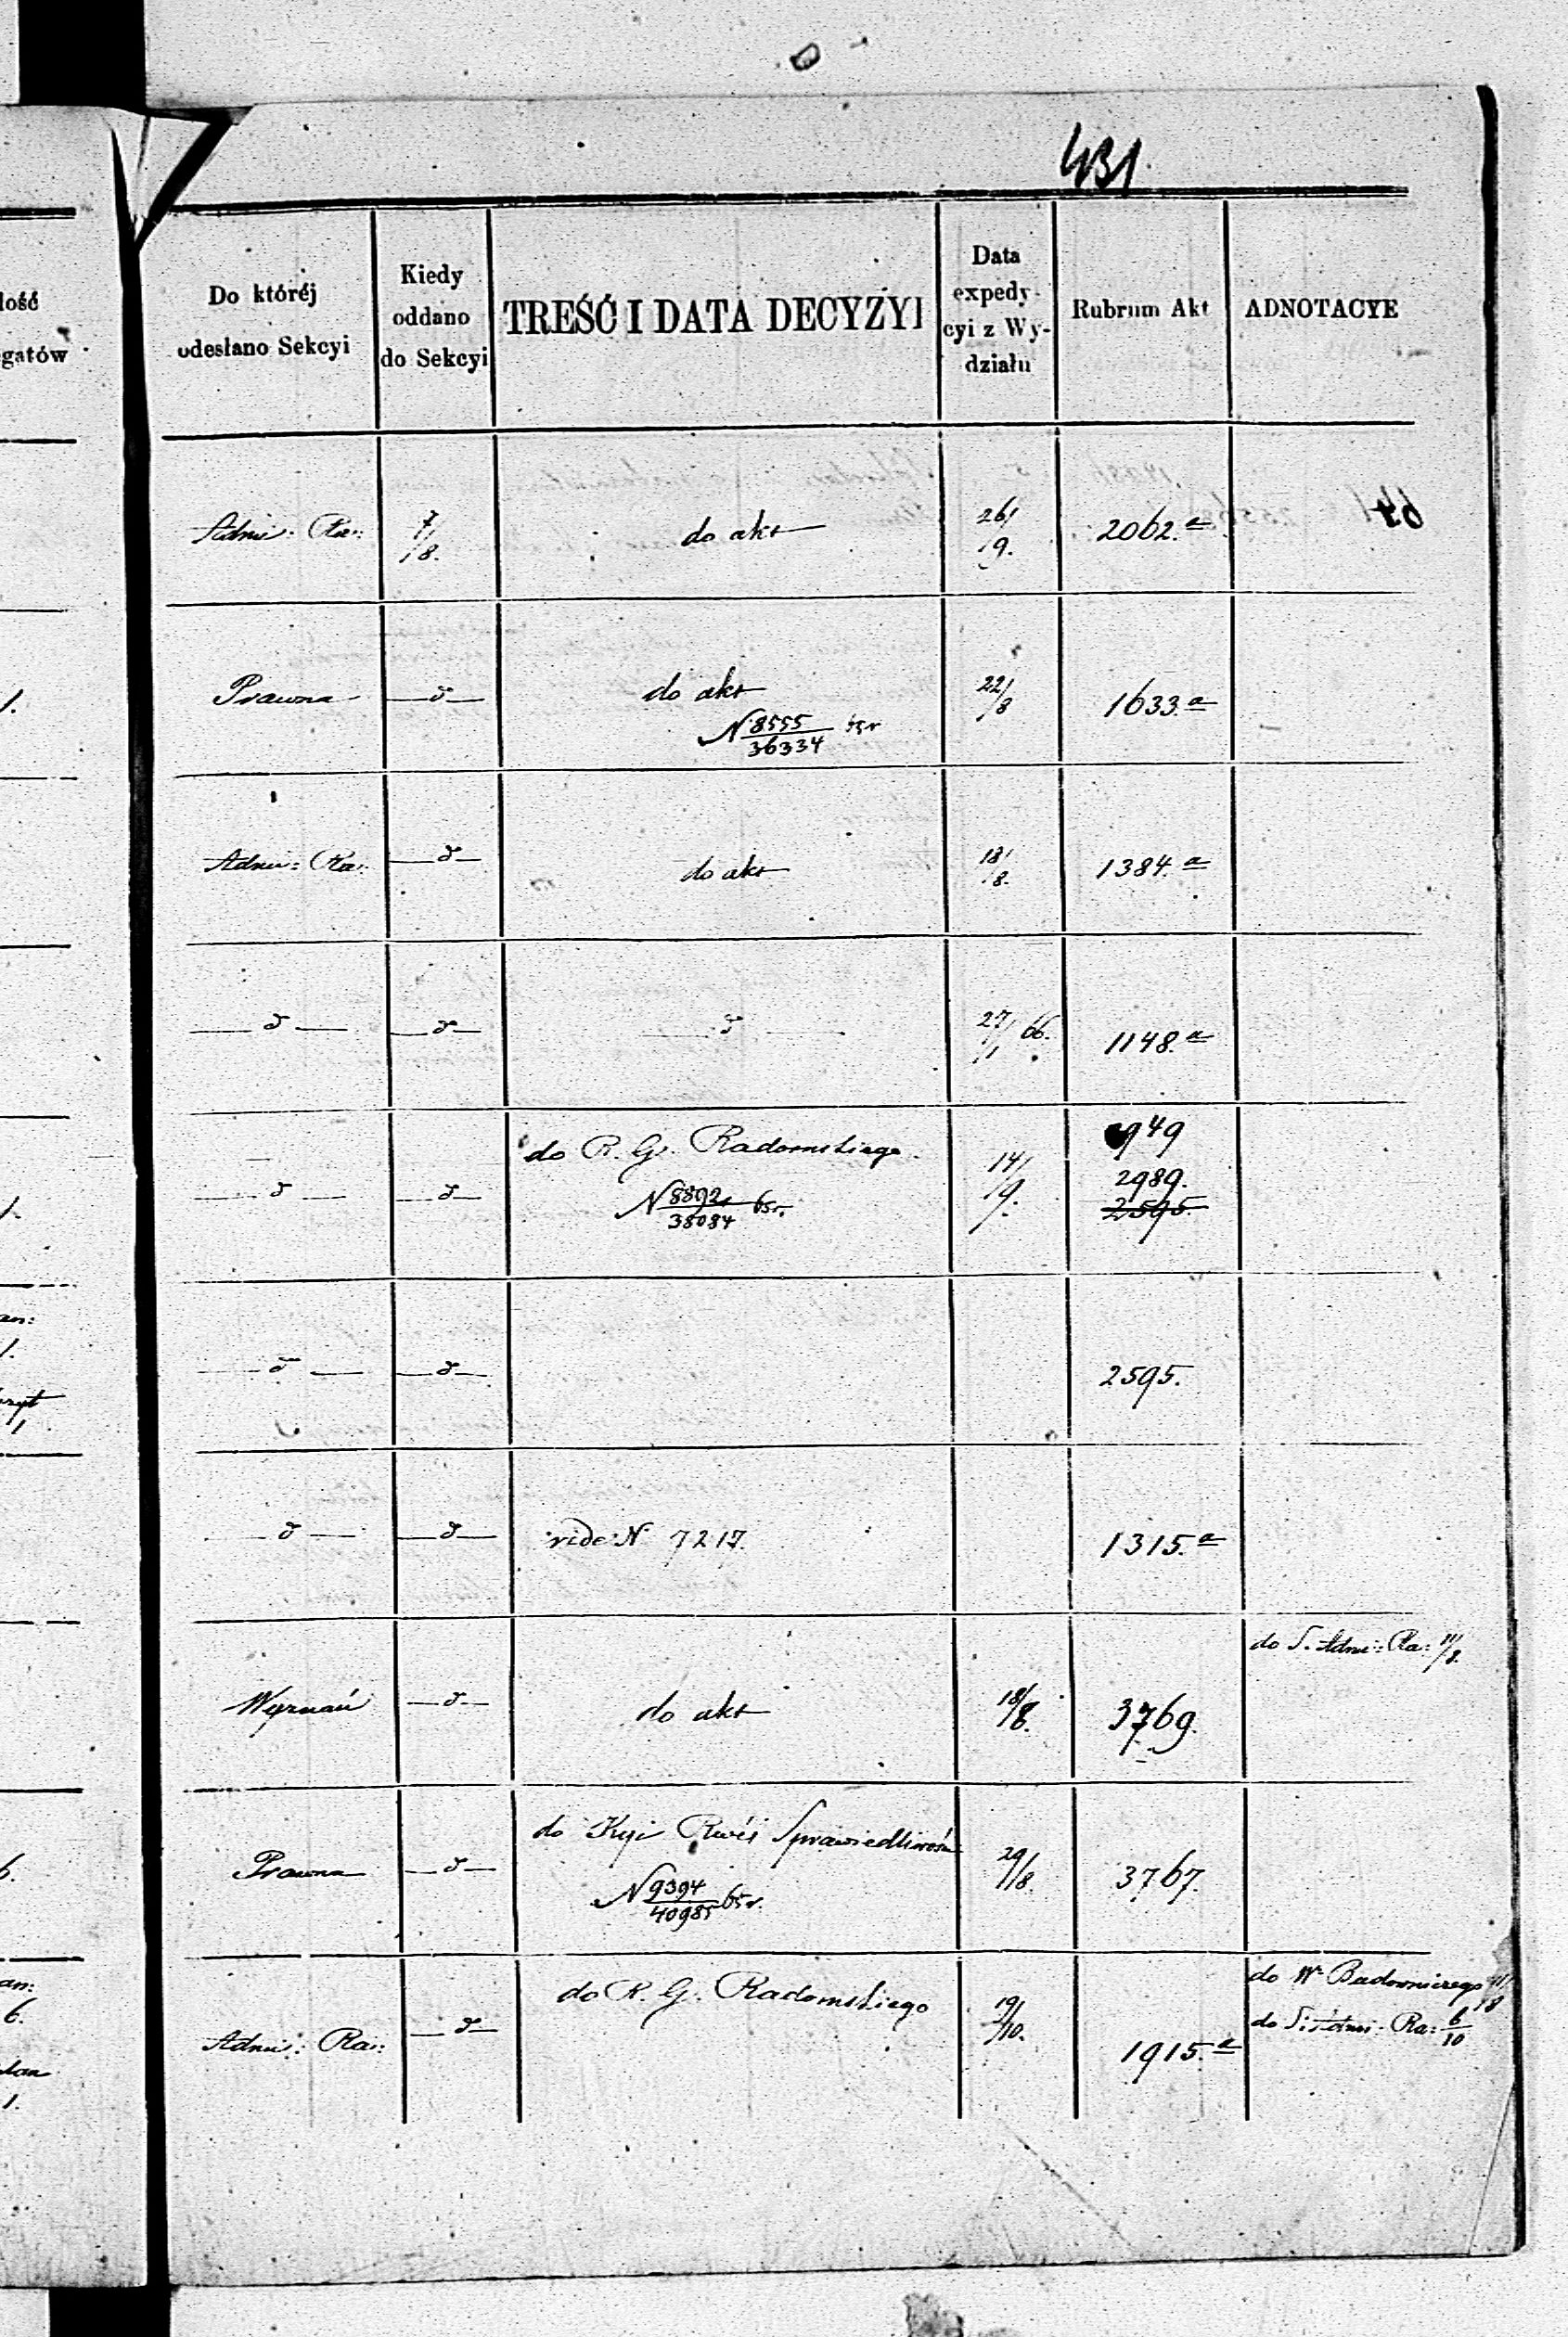 431.
Do któréj
odesłano Sekcyi
Kiedy
oddano
do Sekcyi
TREŚĆ I DATA DECYZYI
Data
expedy-
cyi z Wy-
działu
Rubrum Akt
ADNOTACYE
łość
gatów
Adm: Ra: 7/8. do akt 26/9. 2062.a
Prawna —d— do akt 22/8 1633.a
N 8555/36334 65r
Adm: Ra: —d— do akt 18/8. 1384.a
—d— —d— —d— 27/1 66. 1148.a
—d— —d— do R. G. Radomskiego 14/9. 949
2989.
N 8892/38084 65r. 2595.
—d— —d— 2595.
—d— —d— vide N 7217. 1315.a
do S. Adm: Ra: 11/8.
Wyznań —d— do akt 18/8. 3769.
do Kyi Rwéj Sprawiedliwości
Prawna —d— 29/8. 3767.
N 9394/40985 65r.
do R. G. Radomskiego 19/10. do W Budowniczego 11/8
do S: Adm: Ra: 6/10
Adm: Ra: —d— 1915.a